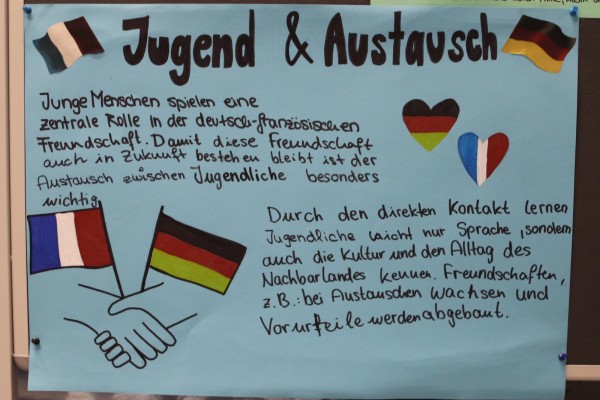 Jugend & Austausch
Junge Menschen spielen eine
zentrale Rolle in der deutsch-französischen
Freundschaft. Damit diese Freundschaft
auch in Zukunft bestehen bleibt ist der
Austausch zwischen Jugendliche besonders
wichtig
Durch den direkten Kontakt lernen
Jugendliche nicht nur Sprache, sondern
auch die Kultur und den Alltag des
Nachbarlandes kennen. Freundschaften,
z.B.: bei Austauschen wachsen und
Vorurteile werden abgebaut.